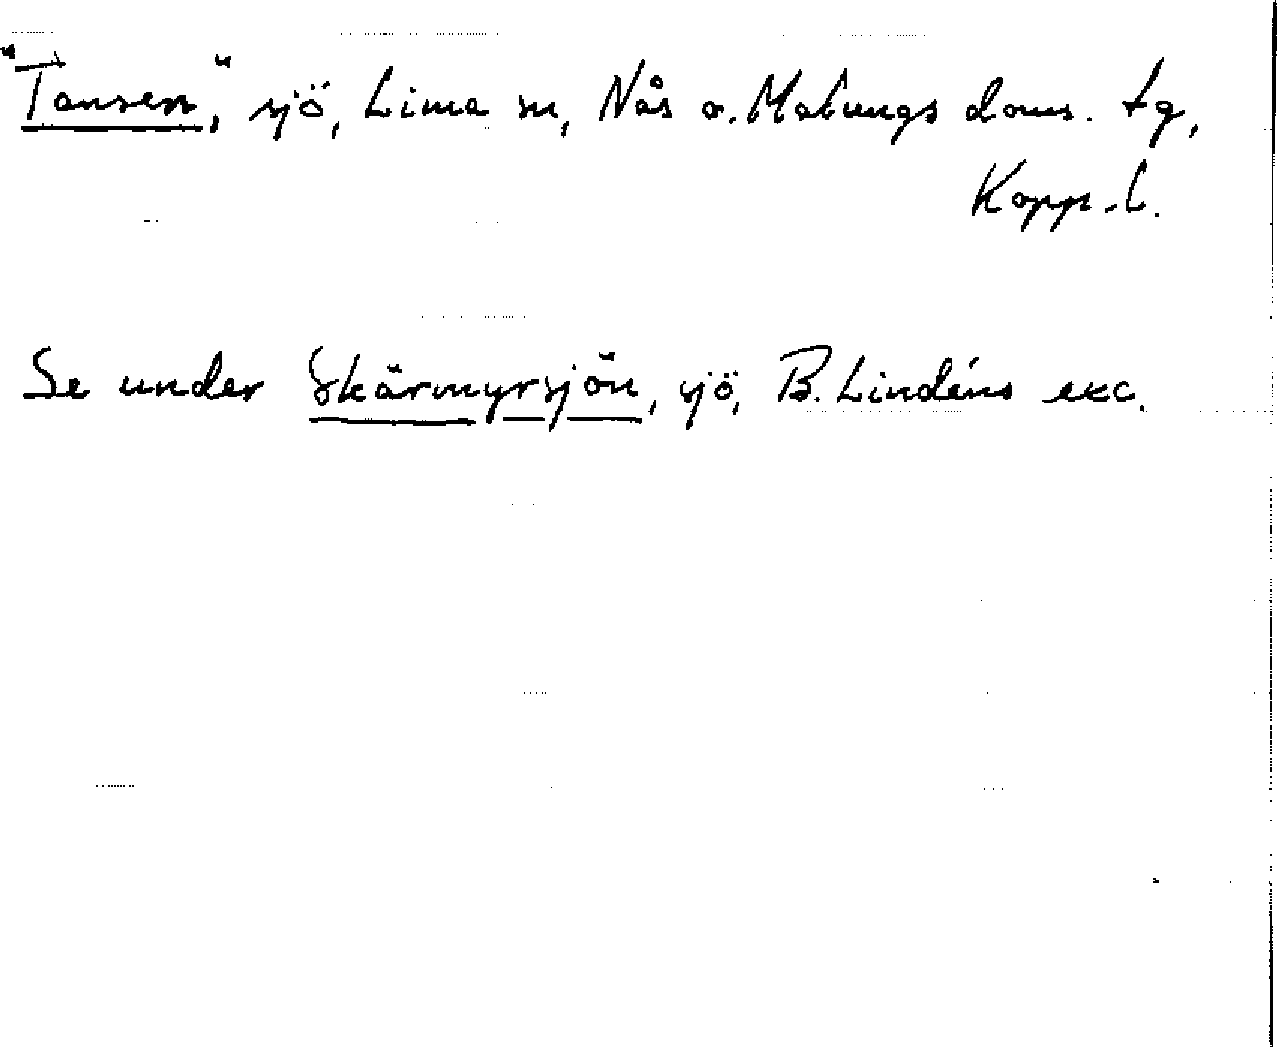 "Tansen", sjö, Lima sn, Nås o. Malungs doms. tg,
Kopp. l.
Se under Skärmyrsjön, sjö, B. Lindéns exc.